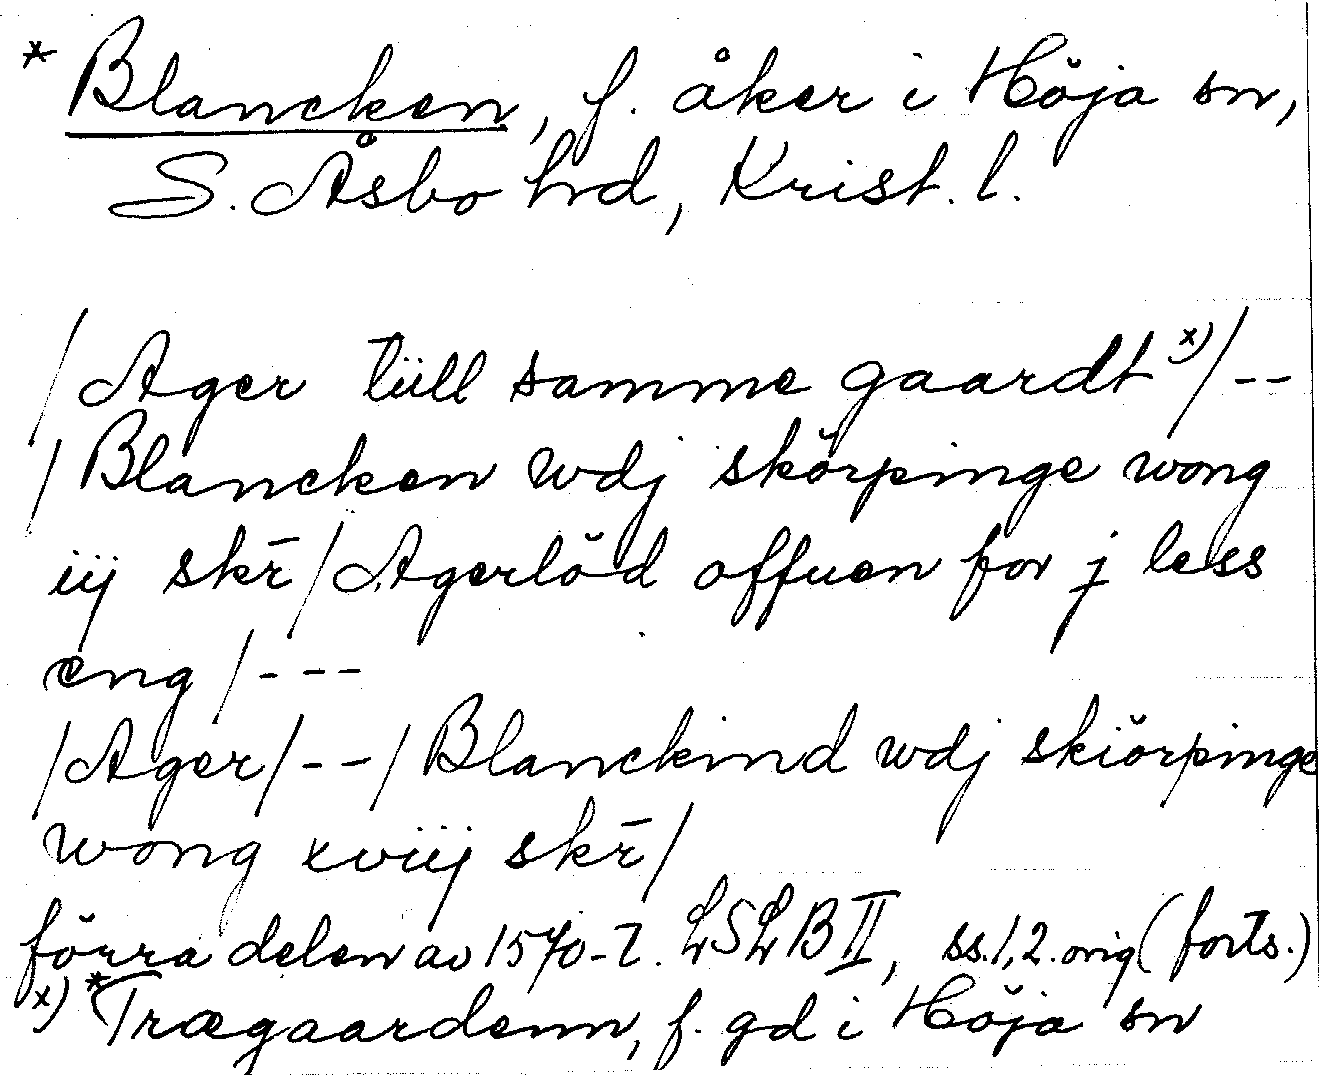 * Blancken, f. åker i Höja sn,
S. Åsbo hrd, Krist. l.
/Ager tüll samme gaardt x)/--
/Blancken wdj skörpinge wong
iij skr̄/Agerlöd offuen for j less
eng/---
/Ager/--/Blanckind wdj skiörpinge
wong xviij skr̄/
förra delen av 1570-t. LSLB II, ss. 1, 2. orig (forts.)
x) *Trægaardenn, f. gd i Höja sn